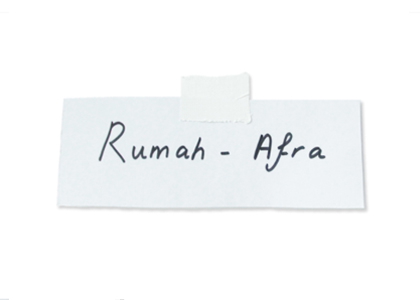 Rumah - Afra